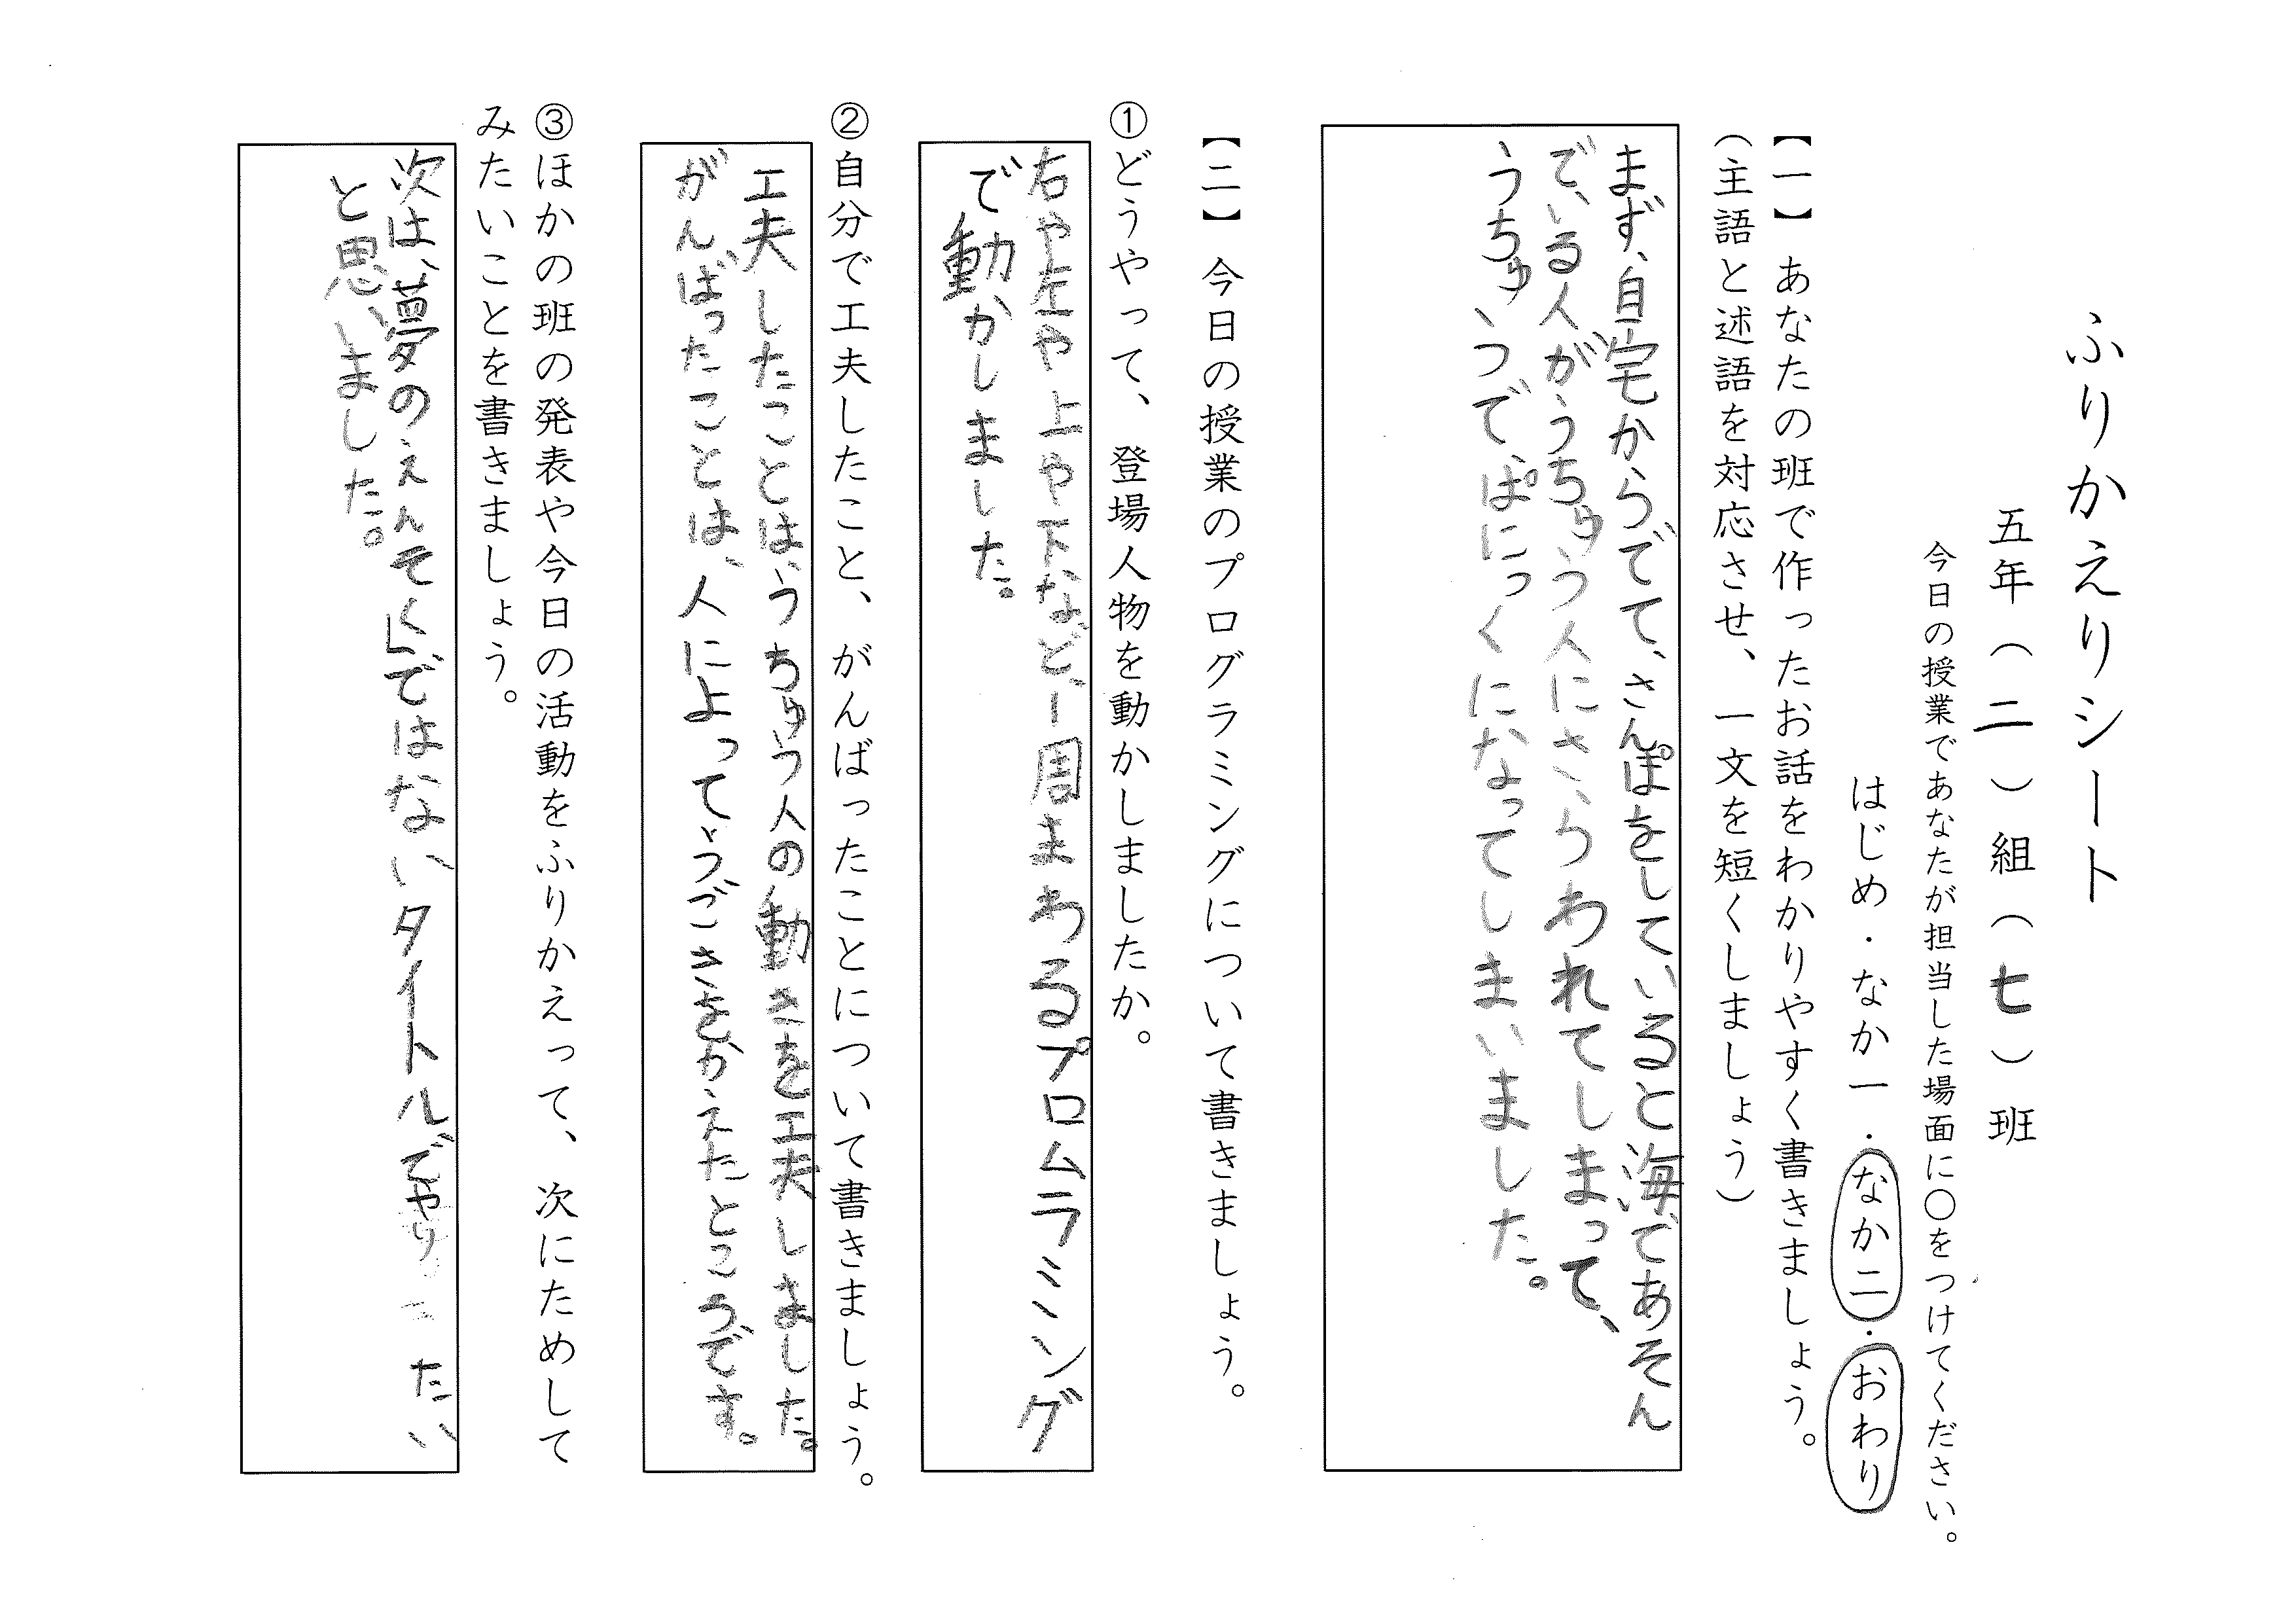 ふりかえりシート
五年（二）組（七）班
今日の授業であなたが担当した場面に〇をつけてください。
はじめ・なか一・なか二・おわり
【一】あなたの班で作ったお話をわかりやすく書きましょう。
（主語と述語を対応させ、一文を短くしましょう）
まず、自宅からでて、さんぽをしていると海であそん
でいる人がうちゅう人にさらわれてしまって、
うちゅうで、ぱにっくになってしまいました。
【二】今日の授業のプログラミングについて書きましょう。
①どうやって、登場人物を動かしましたか。
右や左や上や下など、一周まわるプロムラミング
で動かしました。
②自分で工夫したこと、がんばったことについて書きましょう。
工夫したことは、うちゅう人の動きを工夫しました。
がんばったことは、人によって、うごきをかえたところです。
③ほかの班の発表や今日の活動をふりかえって、次にためして
みたいことを書きましょう。
次は、夢のえんそく」ではないタイトルでやりたい
と思いました。